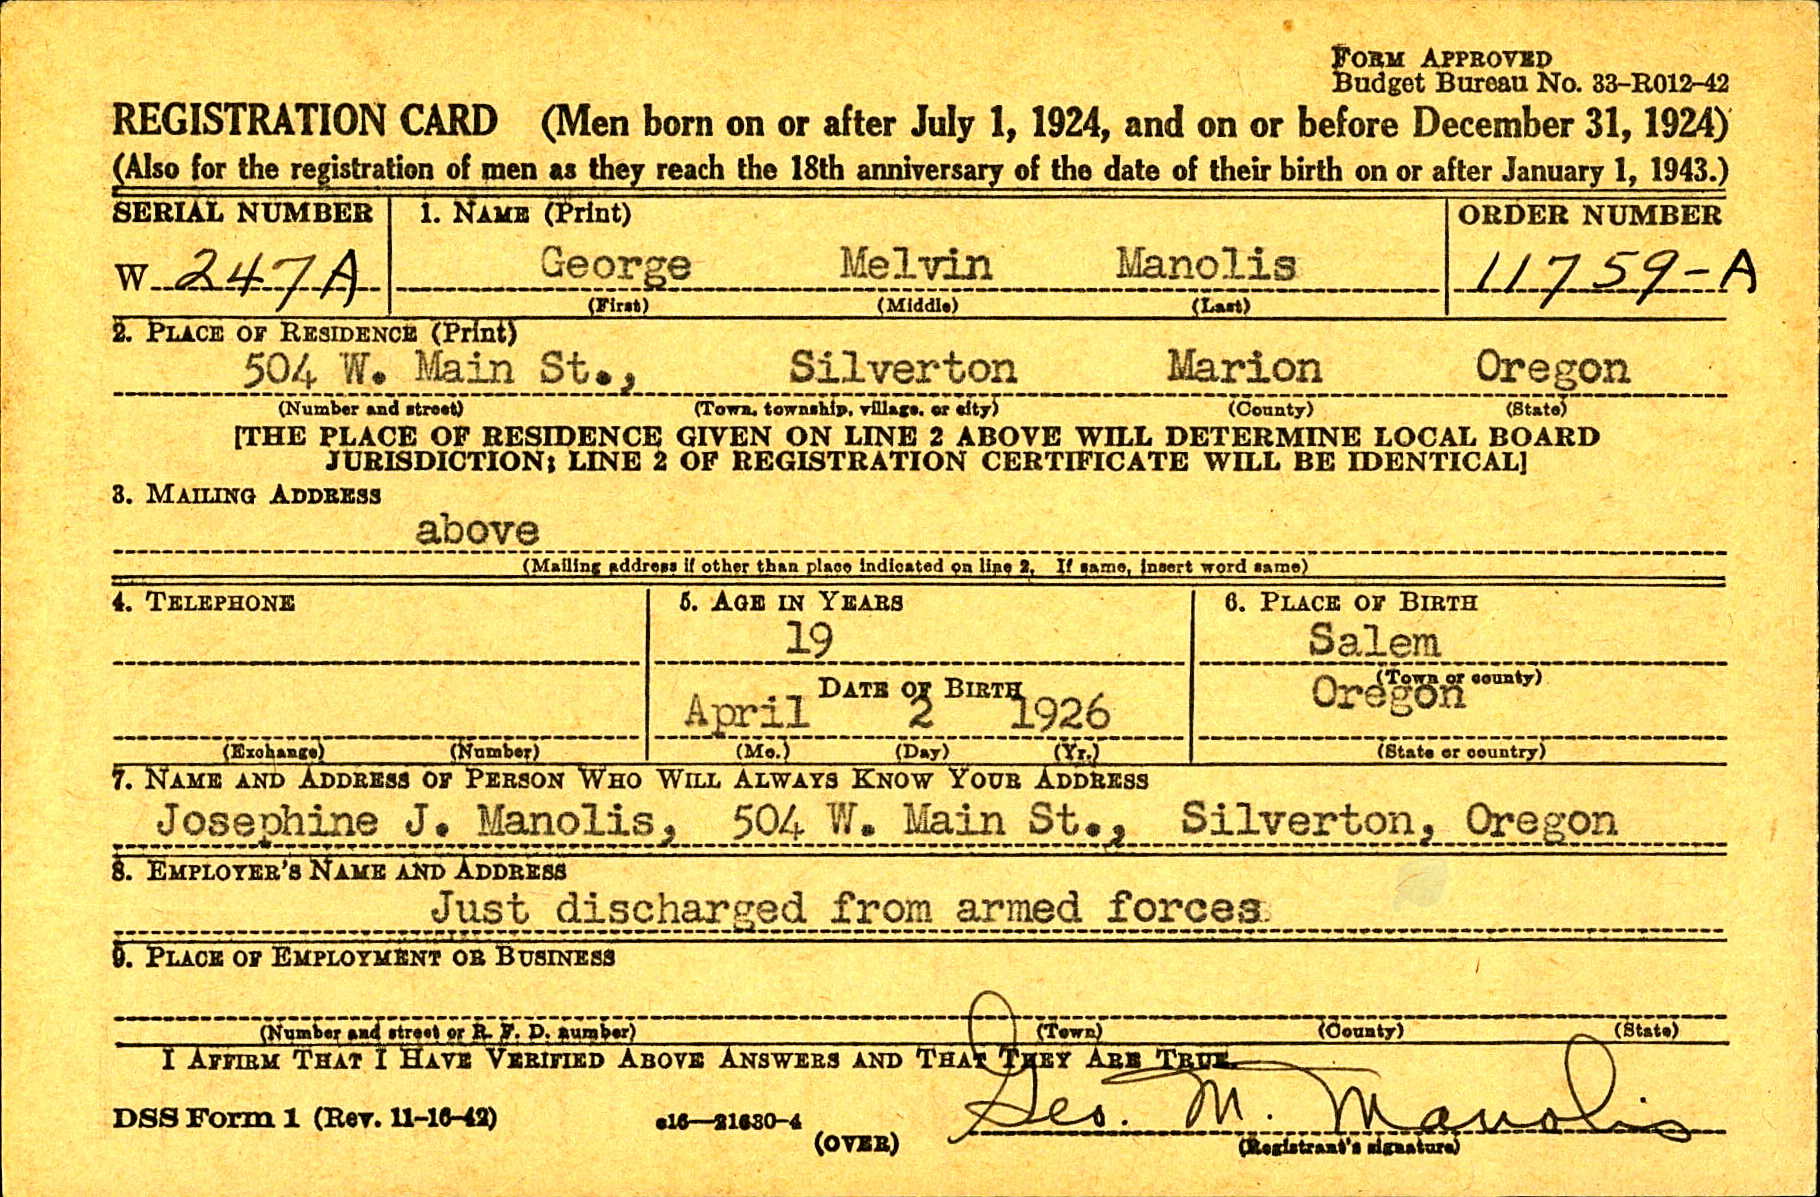 FORM APPROVED
Budget Bureau No. 33–R012–42
REGISTRATION CARD (Men born on or after July 1, 1924, and on or before December 31, 1924)
(Also for the registration of men as they reach the 18th anniversary of the date of their birth on or after January 1, 1943.)
SERIAL NUMBER 1. NAME (Print) ORDER NUMBER
W 247A George Melvin Manolis 11759-A
(First) (Middle) (Last)
2. PLACE OF RESIDENCE (Print)
504 W. Main St., Silverton Marion Oregon
(Number and street) (Town, township, village, or city) (County) (State)
[THE PLACE OF RESIDENCE GIVEN ON LINE 2 ABOVE WILL DETERMINE LOCAL BOARD
JURISDICTION; LINE 2 OF REGISTRATION CERTIFICATE WILL BE IDENTICAL]
3. MAILING ADDRESS
above
(Mailing address if other than place indicated on line 2. If same, insert word same)
4. TELEPHONE 5. AGE IN YEARS 6. PLACE OF BIRTH
19 Salem
DATE OF BIRTH (Town or county)
April 2 1926 Oregon
(Exchange) (Number) (Mo.) (Day) (Yr.) (State or country)
7. NAME AND ADDRESS OF PERSON WHO WILL ALWAYS KNOW YOUR ADDRESS
Josephine J. Manolis, 504 W. Main St., Silverton, Oregon
8. EMPLOYER'S NAME AND ADDRESS
Just discharged from armed forces
9. PLACE OF EMPLOYMENT OR BUSINESS
(Number and street or R. F. D. number) (Town) (County) (State)
I AFFIRM THAT I HAVE VERIFIED ABOVE ANSWERS AND THAT THEY ARE TRUE.
Geo. M. Manolis
DSS Form 1 (Rev. 11–16–42) c16—21630-4
(OVER) (Registrant's signature)